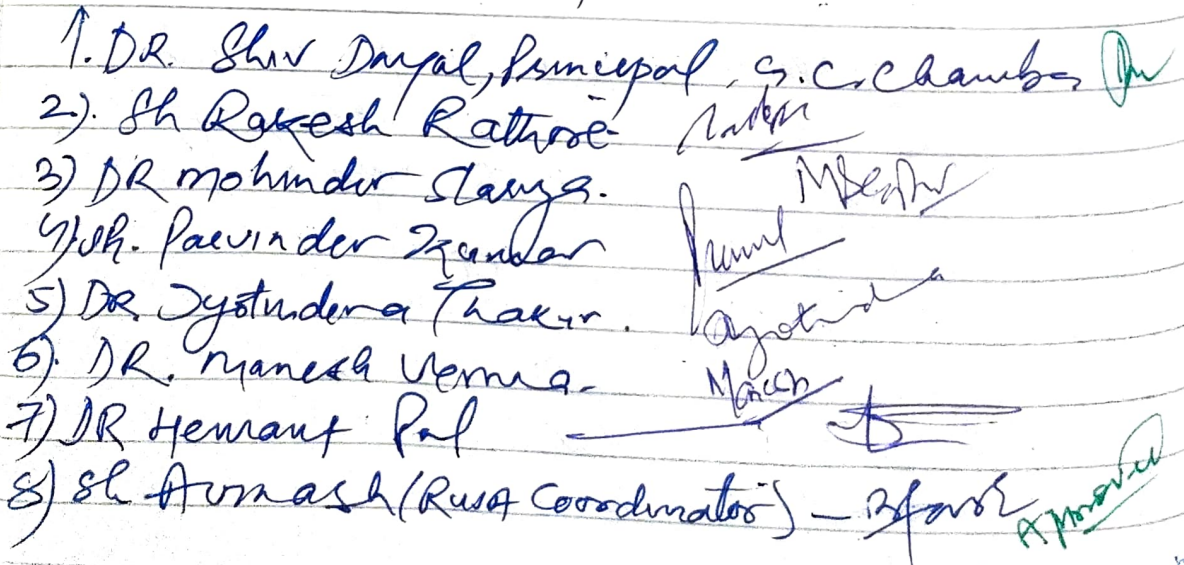 1. DR. Shiv Dayal, Principal, G.C. Chamba
2). Sh Rakesh Rathore
3) DR Mohinder Slariya.
4) Sh. Parvinder Kumar
5) DR. Jyotindera Thakur.
6). DR. Manesh Verma.
7) DR Hemant Pal
8) Sh Avinash (RUSA Coordinator) –
Approved